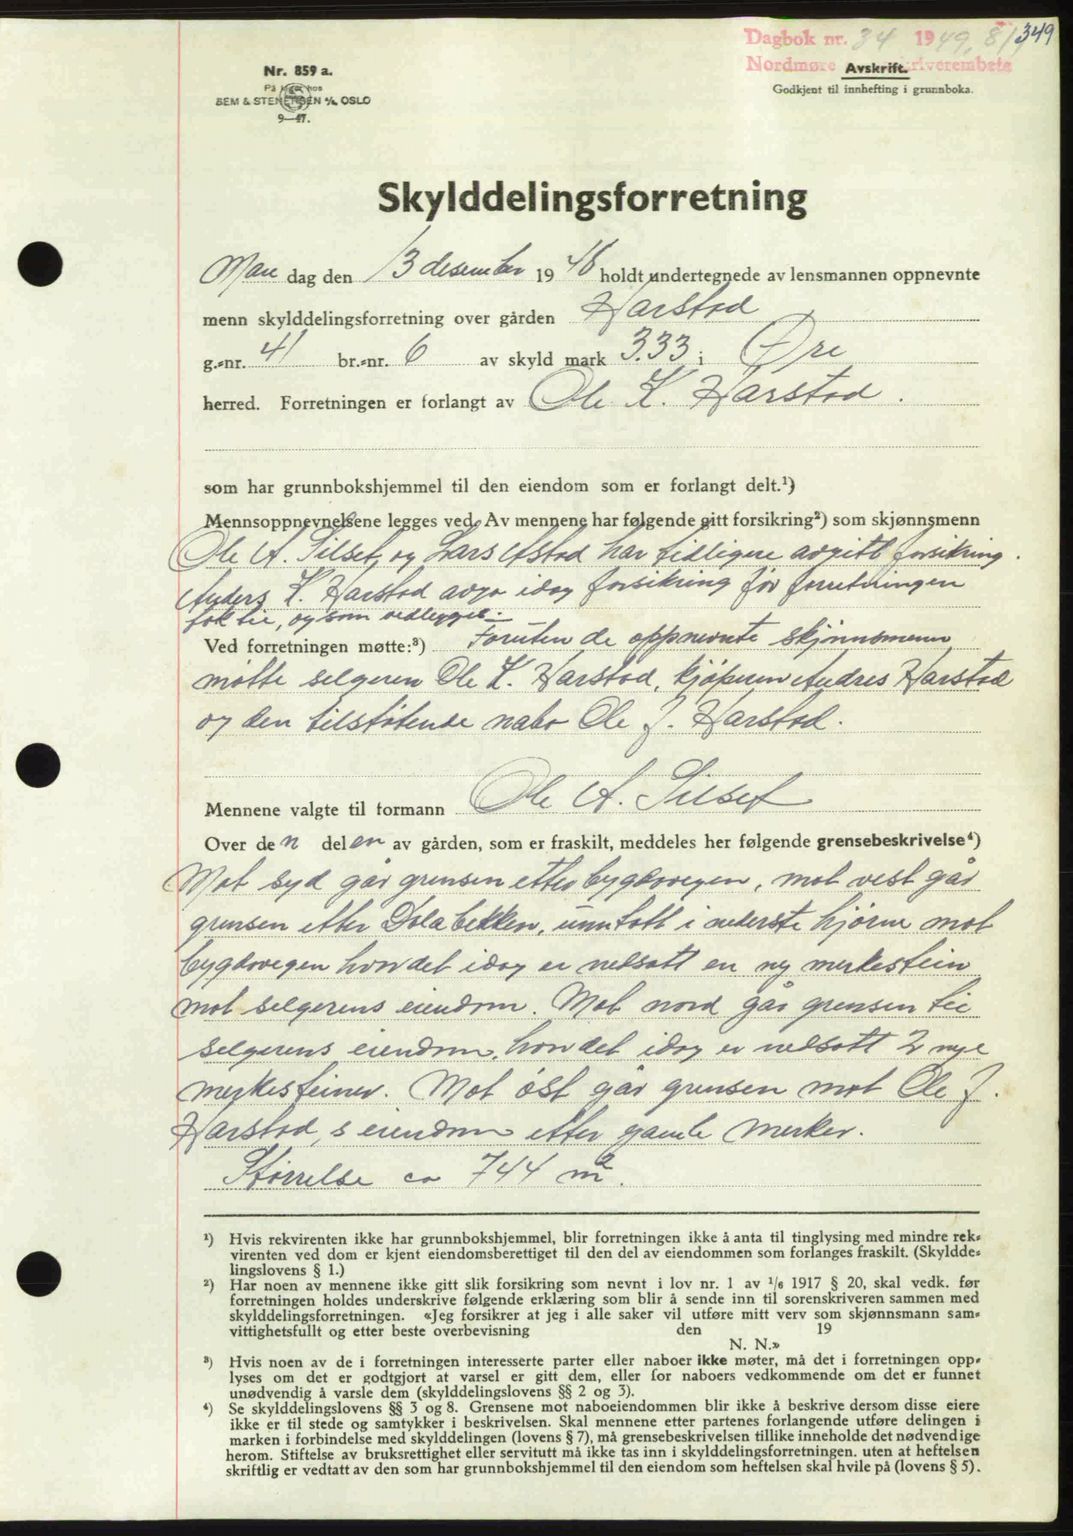 Dagbok nr. 34 1949, 8/1 349
Nordmøre sorenskriverembete
Avskrift.
Godkjent til innhefting i grunnboka.
Nr. 859 a.
På lager hos
SEM & STENERSEN A/S, OSLO
9—47.
Skylddelingsforretning
Man dag den 13 desember 1948 holdt undertegnede av lensmannen oppnevnte
menn skylddelingsforretning over gården Harstad
g.-nr. 41 br.-nr. 6 av skyld mark 3.33 i Øre
herred. Forretningen er forlangt av Ole K. Harstad.
som har grunnbokshjemmel til den eiendom som er forlangt delt.¹)
Mennsoppnevnelsene legges ved. Av mennene har følgende gitt forsikring²) som skjønnsmenn
Ole A. Silset, og Lars Astad har tidligere avgitt forsikring.
Anders K. Harstad avga idag forsikring før forretningen
tok til, og som vedlegges.
Ved forretningen møtte:³) Foruten de oppnevnte skjønnsmenn
møtte selgeren Ole K. Harstad, kjøperen Andres Harstad
og den tilstøtende nabo Ole J. Harstad.
Mennene valgte til formann Ole A. Silset
Over den delen av gården, som er fraskilt, meddeles her følgende grensebeskrivelse⁴)
Mot syd går grensen etter bygdevegen, mot vest går
grensen etter bekken, unntatt i nederste hjørne mot
bygdevegen hvor det idag er nedsatt en ny merkestein
mot selgerens eiendom. Mot nord går grensen til
selgerens eiendom, hvor det idag er nedsatt 2 nye
merkesteiner. Mot øst går grensen mot Ole J.
Harstad,s eiendom etter gamle merker.
Størrelse ca 744 m².
¹) Hvis rekvirenten ikke har grunnbokshjemmel, blir forretningen ikke å anta til tinglysing med mindre rek-
virenten ved dom er kjent eiendomsberettiget til den del av eiendommen som forlanges fraskilt. (Skyldde-
lingslovens § 1.)
²) Har noen av mennene ikke gitt slik forsikring som nevnt i lov nr. 1 av 1/6 1917 § 20, skal vedk. før
forretningen holdes underskrive følgende erklæring som blir å sende inn til sorenskriveren sammen med
skylddelingsforretningen. «Jeg forsikrer at jeg i alle saker vil utføre mitt verv som skjønnsmann sam-
vittighetsfullt og etter beste overbevisning den 19
N. N.»
³) Hvis noen av de i forretningen interesserte parter eller naboer ikke møter, må det i forretningen opp-
lyses om det er godtgjort at varsel er gitt dem, eller for naboers vedkommende om det er funnet
unødvendig å varsle dem (skylddelingslovens §§ 2 og 3).
⁴) Se skylddelingslovens §§ 3 og 8. Grensene mot naboeiendommen blir ikke å beskrive dersom disse eiere
ikke er til stede og samtykker i beskrivelsen. Skal mennene etter partenes forlangende utføre delingen i
marken i forbindelse med skylddelingen (lovens § 7), må grensebeskrivelsen tillike inneholde det nødvendige
herom. Stiftelse av bruksrettighet eller servitutt må ikke tas inn i skylddelingsforretningen, uten at heftelsen
skriftlig er vedtatt av den som har grunnbokshjemmel til den eiendom som heftelsen skal hvile på (lovens § 5).